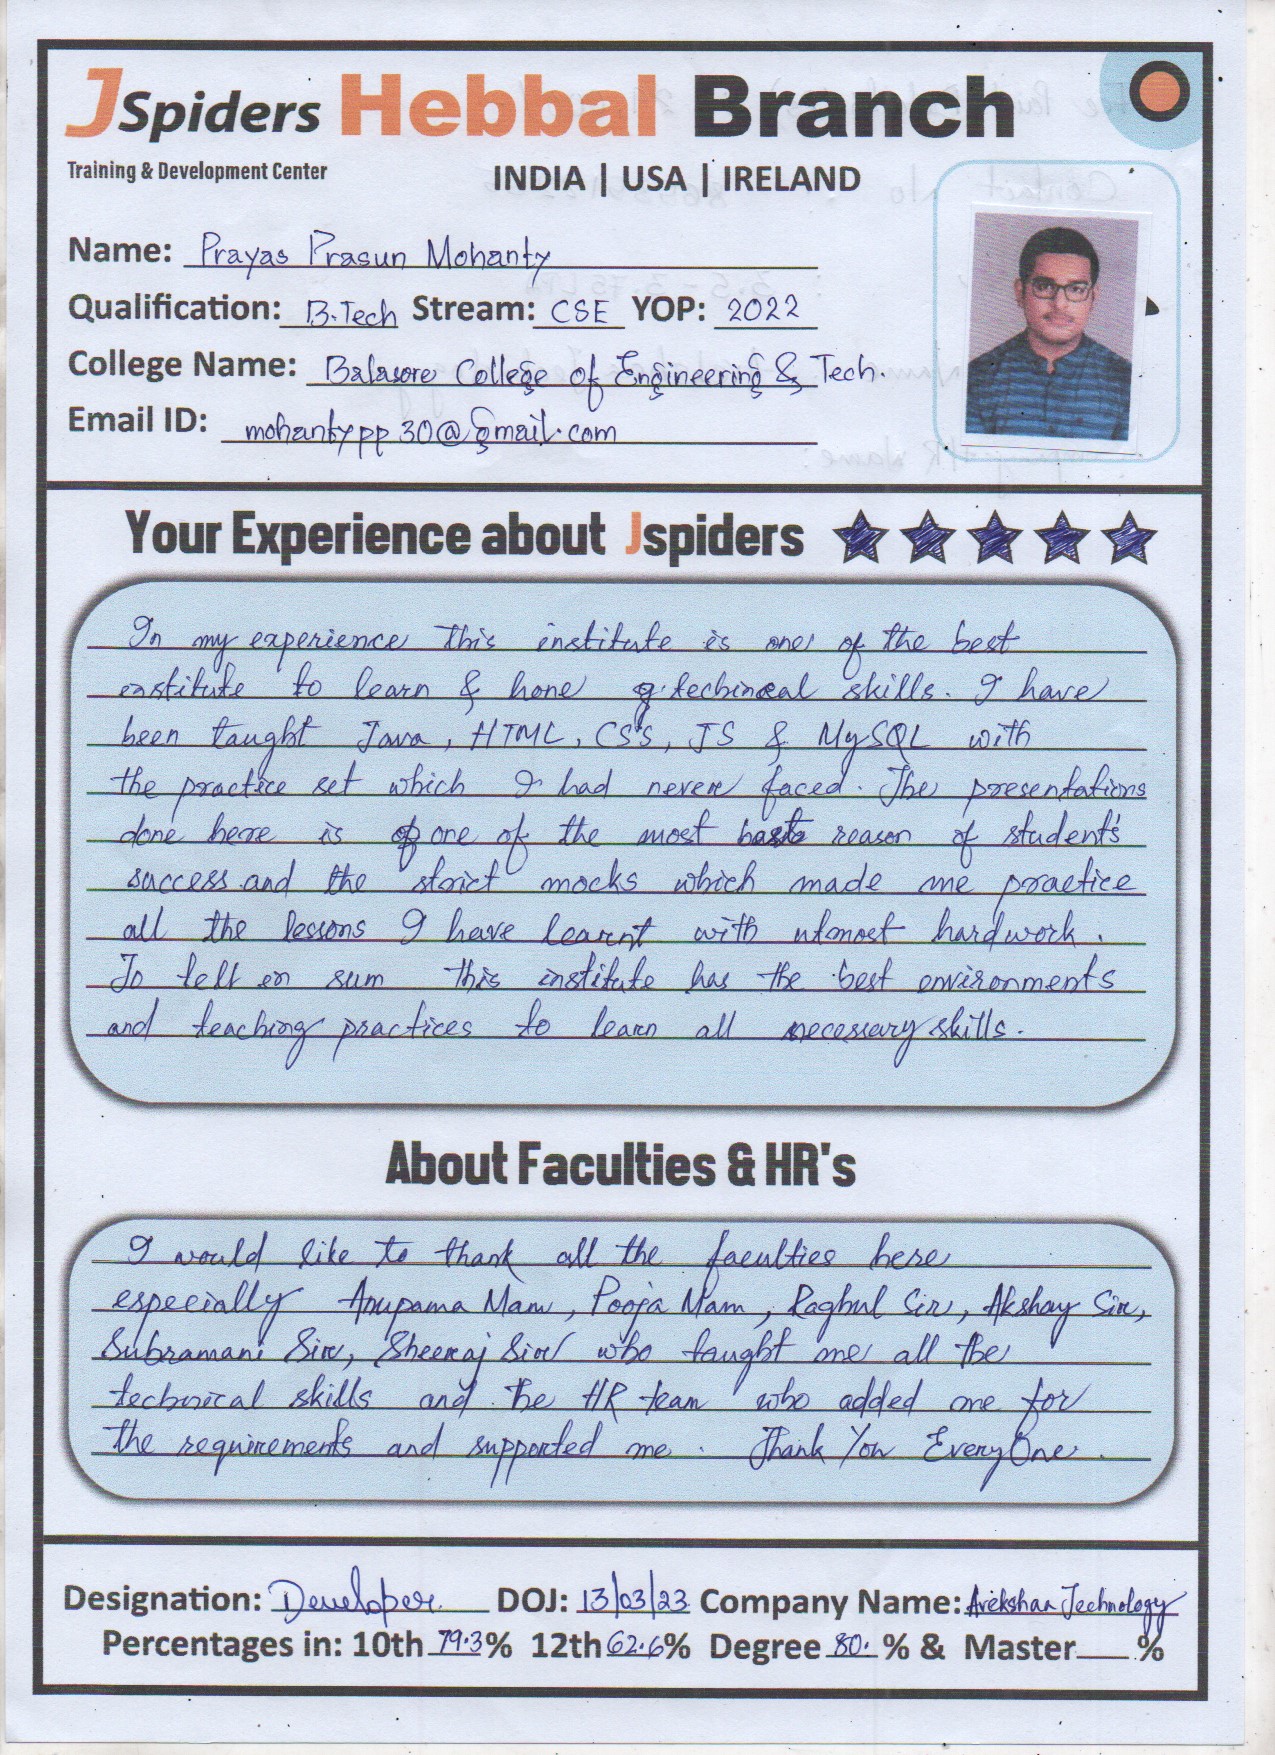 JSpiders Hebbal Branch
Training & Development Center
INDIA | USA | IRELAND
Name: Prayas Prasun Mohanty
Qualification: B.Tech Stream: CSE YOP: 2022
College Name: Balasore College of Engineering & Tech.
Email ID: mohantypp30@gmail.com
Your Experience about Jspiders
In my experience this institute is one of the best
institute to learn & hone technical skills. I have
been taught Java, HTML, CSS, JS & MySQL with
the practice set which I had never faced. The presentations
done here is one of the most reason of student's
success and the strict mocks which made me practice
all the lessons I have learnt with utmost hardwork.
To tell in sum this institute has the best environments
and teaching practices to learn all necessary skills.
About Faculties & HR's
I would like to thank all the faculties here
especially Anupama Mam, Pooja Mam, Raghul Sir, Akshay Sir,
Subramani Sir, Sheeraj Sir who taught me all the
technical skills and the HR team who added me for
the requirements and supported me. Thank You EveryOne.
Designation: Developer DOJ: 13/03/23 Company Name: Arekshaa Technology
Percentages in: 10th 79.3% 12th 62.6% Degree 80.% & Master %